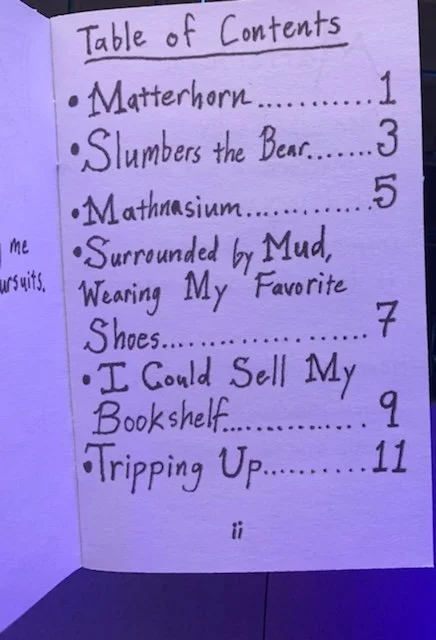 Table of Contents
• Matterhorn............1
• Slumbers the Bear.......3
• Mathnasium.............5
me
• Surrounded by Mud,
ursuits.
Wearing My Favorite
Shoes.....................7
• I Could Sell My
Bookshelf...............9
• Tripping Up..........11
ii